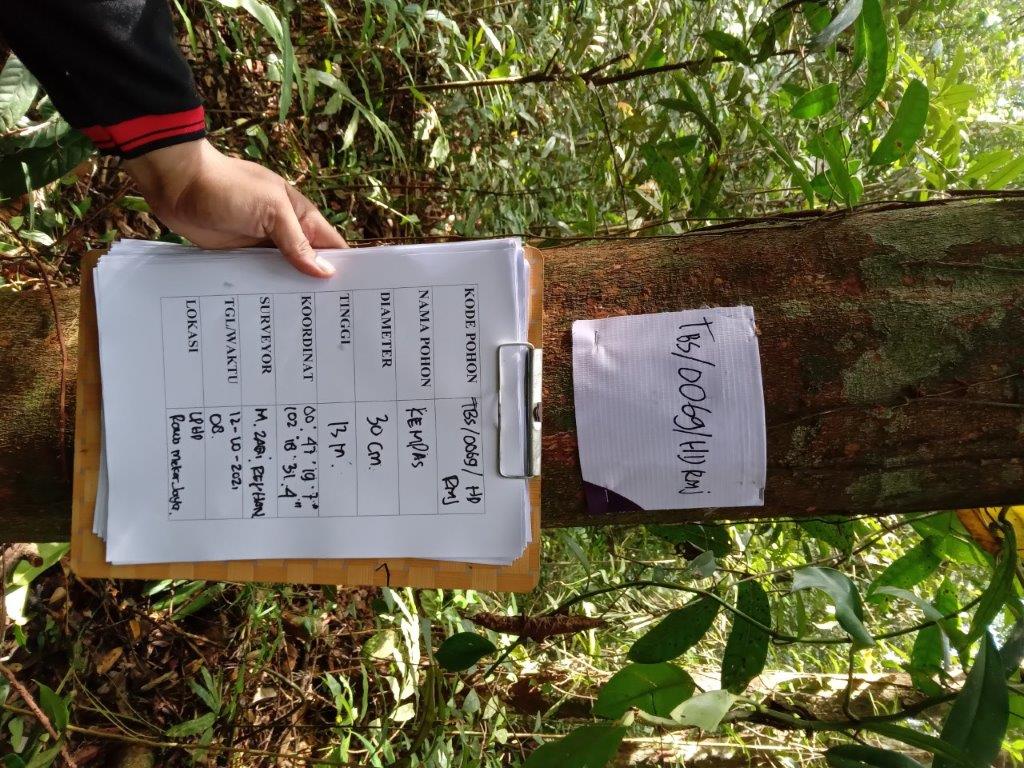 TBS/0069/HD RMJ
KODE POHON TBS/0069/ HD
RMJ
NAMA POHON KEMPAS
DIAMETER 30 cm.
TINGGI 13 m.
KOORDINAT 00° 47' 19.7"
102° 18' 31.4"
SURVEYOR M. ZAKI REYHAN
TGL/WAKTU 12-10-2021
08.
LOKASI LPHD
Rawa Mekar Jaya.